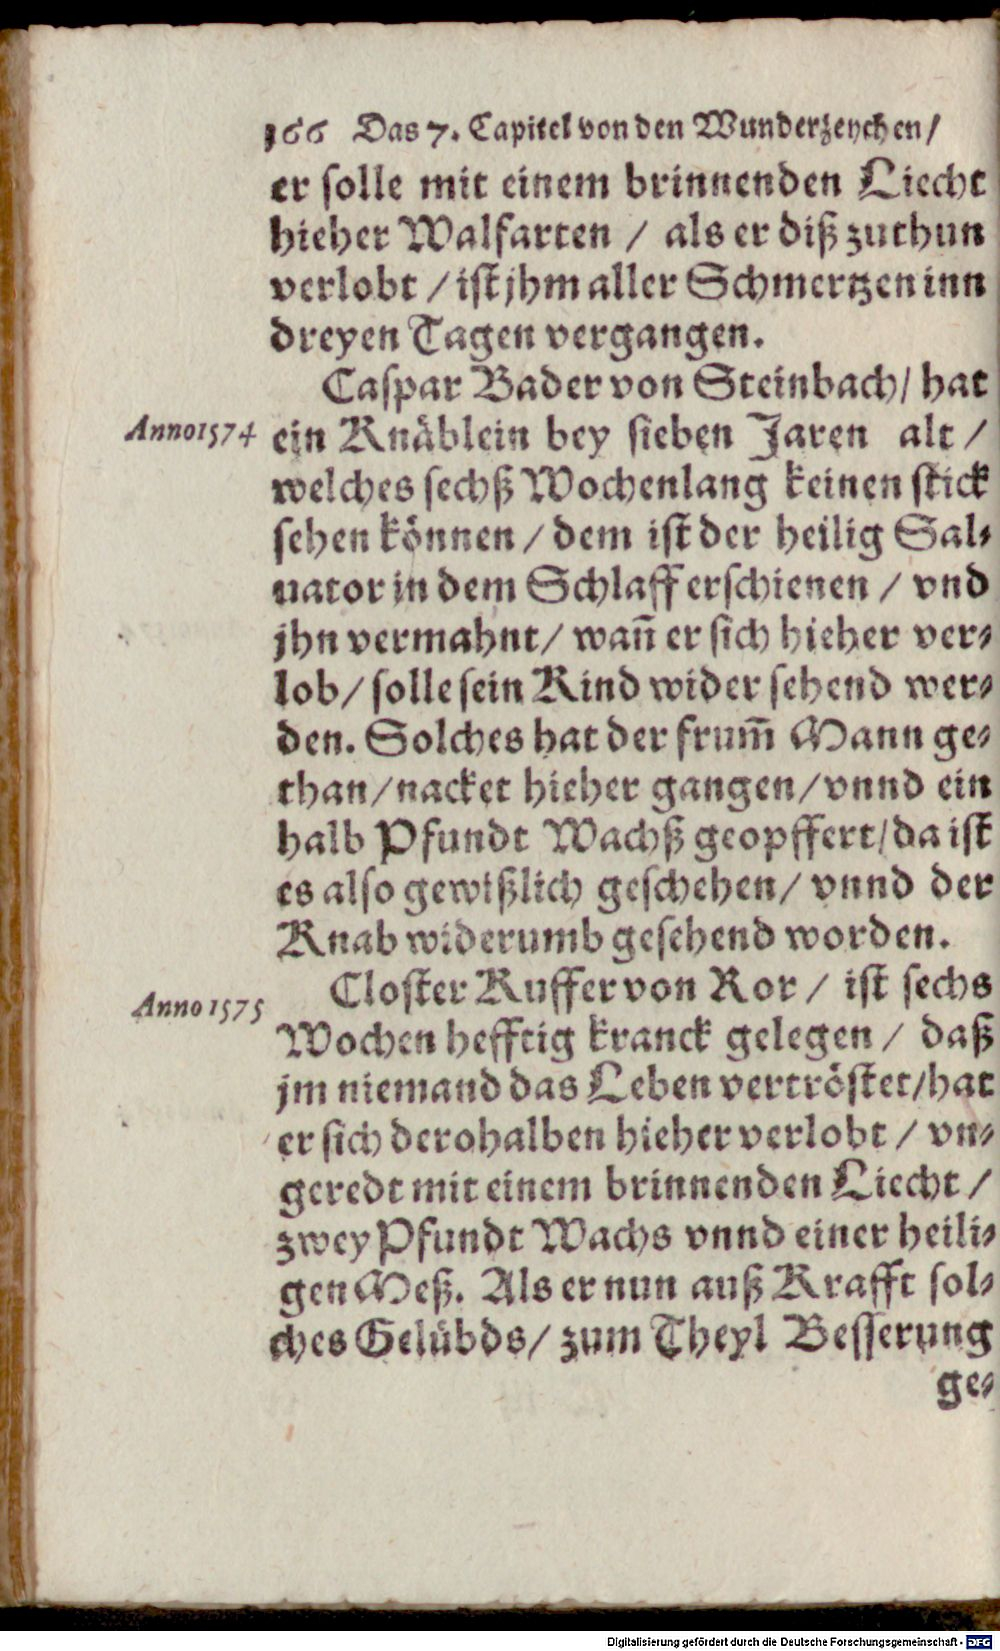 166 Das 7. Capitel von den Wunderzeychen/
er solle mit einem brinnenden Liecht
hieher Walfarten / als er diß zuthun
verlobt / ist jhm aller Schmertzen inn
dreyen Tagen vergangen.
Caspar Bader von Steinbach/ hat
Anno 1574 ein Knäblein bey sieben Jaren alt /
welches sechß Wochenlang keinen stick
sehen können / dem ist der heilig Sal-
uator in dem Schlaff erschienen / vnd
jhn vermahnt/ wañ er sich hieher ver-
lob/ solle sein Kind wider sehend wer-
den. Solches hat der frum̃ Mann ge-
than/nacket hieher gangen/vnnd ein
halb Pfundt Wachß geopffert/da ist
es also gewißlich geschehen/ vnnd der
Knab widerumb gesehend worden.
Closter Kuffer von Ror / ist sechs
Anno 1575 Wochen hefftig kranck gelegen / daß
jm niemand das Leben vertröstet/hat
er sich derohalben hieher verlobt / vn-
geredt mit einem brinnenden Liecht /
zwey Pfundt Wachs vnnd einer heili-
gen Meß. Als er nun auß Krafft sol-
ches Gelübds/ zum Theyl Besserung
ge-
Digitalisierung gefördert durch die Deutsche Forschungsgemeinschaft - DFG